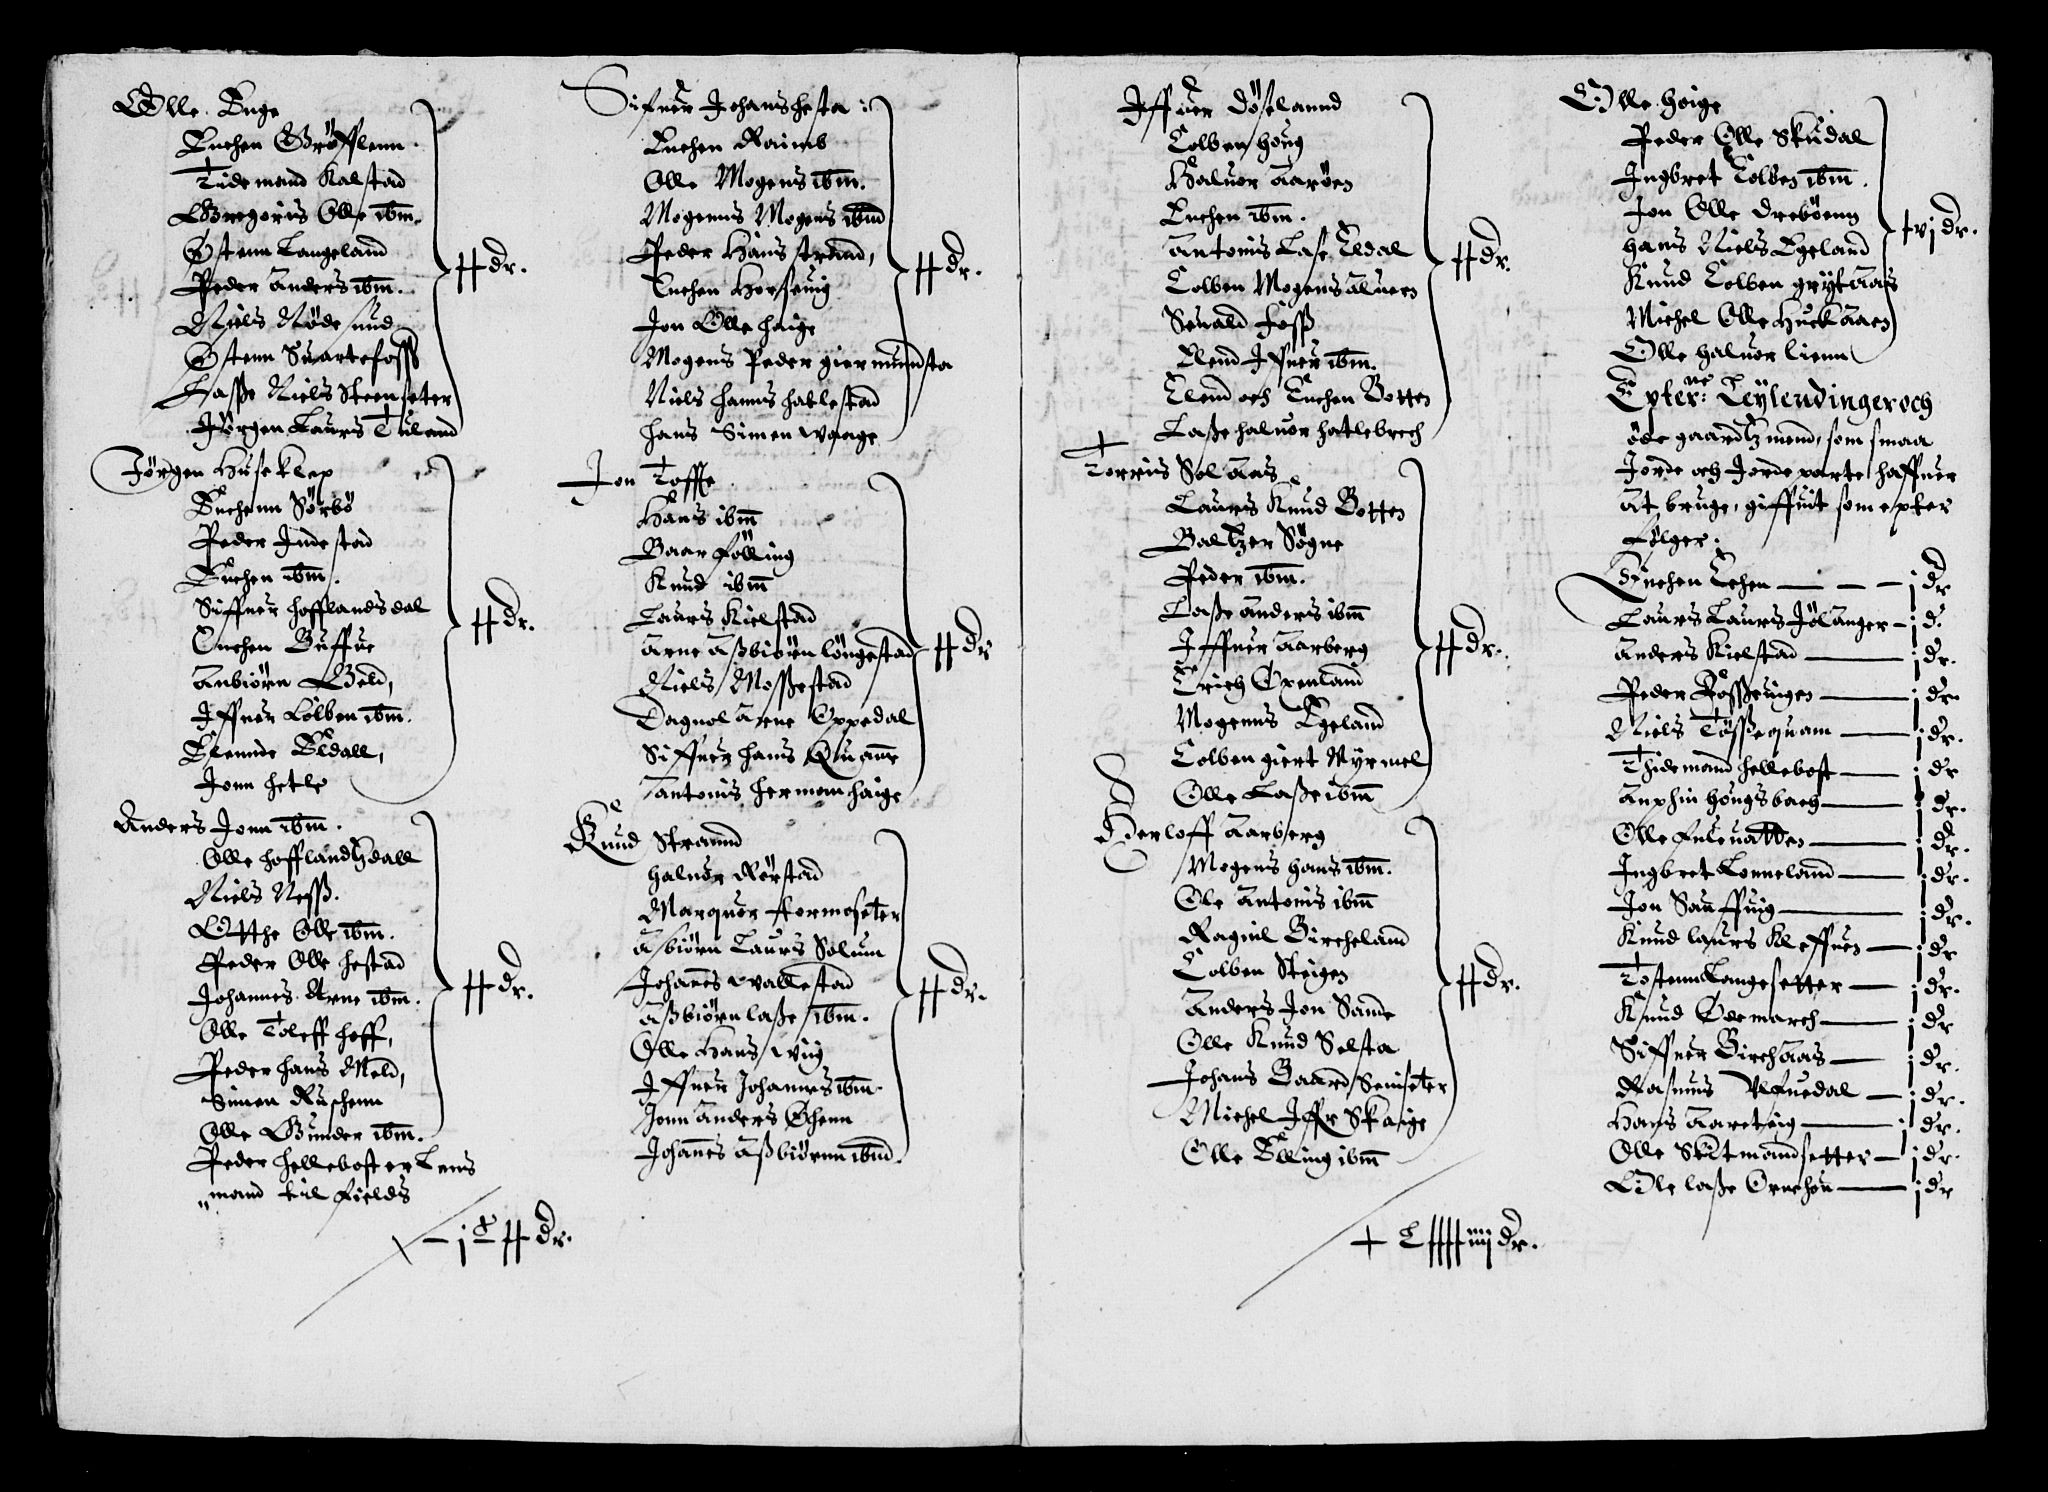 Olle Enge
Enchen Gröfflenn
Tidemand Kalstad
Gregorius Olle ibm.
Østenn Langeland
Peder Anders ibm.
Niels Rödesund
Østenn Suartefoss
Lasse Niels Steenseter
Jörgen Laurs Tuland
xx dr.
Jörgen Huseklep
Enchenn Sörbö
Peder Indestad
Enchen ibm.
Siffuer hofflandsdal
Enchen Buffue
Anbiörn Geld,
Iffuer Colben ibm.
Elennde Eldall,
Jonn hetle
xx dr.
Anders Jonn ibm.
Olle hofflandtzdall
Niels Ness.
Otthe Olle ibm.
Peder Olle hestad
Johannes Arne ibm.
Olle Toleff hoff,
Peder hans Meld,
Simen Ruschenn
Olle Gunder ibm.
xx dr.
Peder hellebost er Lens
mand til Fields
j c xx dr.
Sifuer Johans hesta
Enchen Raimb
Olle Mogens ibm.
Mogenns Mogens ibm
Peder Hans strand,
Enchen Horseuig
Jon Olle haige
Mogens Peder giermundsta
Niels hanns hatlestad
hans Simen waage
xx dr.
Jon Toffte
Hans ibm
Baar Fölling
Knud ibm
Laurs Kielstad
Arne Assbiörn löngestad
Niels Mossestad
Dagnol Arne Oppedal
Siffuer hans Quame
Antonis herman haige
xx dr
Knud Strannd
haluor Rörstad
Marquor Hormoseter
Asbiörn Laurs Solum
Johanes wallestad
Assbiörn lasse ibm.
Olle Hans wiig
Iffuer Johannes ibm.
Jonn Anders Öhenn
Johanes Assbiörnn ibm.
xx dr.
Iffuer döselannd
Colben houg
Haluor Aaröen
Enchen ibm.
Antonis Lase Eldal
Colben Mogens aluern
Seuald foss
Elend Iffuer ibm.
Elend och Enchen Botten
Lasse haluor hatlebrech
xx dr.
Torris Solaas
Laurs Knud Botten
Baltzer Sögne
Peder ibm.
Lasse Anders ibm
Iffuer Aarberg
Erich Oxenland
Mogenns Egeland
Colben giert Myrmel
Olle Lasse ibm
xx dr.
Herloff Aarberg
Mogens hans ibm.
Ole Antonis ibm
Ragnil Bircheland
Colben Steigen
Anders Jon Sande
Olle Knud Selsta
Johans Baard Senseter
Michel Iffr Skaige
Olle Elling ibm
xx dr.
Olle hoige
Peder Olle Skudal
Ingbret Colben ibm.
Jon Olle dreböenn
hans Niels Egeland
Knud Colben grytaas
Michel Olle Huckaaen
Olle haluor lienn
xvj dr.
Epterne: Leylendinger och
öde gaardtzmend, som smaa
Jorde och Jorde parte haffuer
at bruge, giffuit som epter
Følger:
Enchen Echen — j dr
Laurs Laurs Jölanger — j d.
Anders Kielstad — j dr.
Peder Rösseuigen — j dr.
Niels Tössequam — j dr.
Thidemand hellebost — j dr
Anphin hougsbach — j dr.
Olle Fuleuatten — j dr.
Ingbret Lonneland — j dr.
Jon Sauffuig — j dr.
Knud laurs Kleffuen — j dr
Tostenn Langesetter — j dr.
Knud Ödemarch — j dr
Siffuer Birchaas — j dr.
Rasmus Vlfuedal — j dr.
Hans Aareteig — j dr.
Olle Skutmandsetter — j dr.
Ole lasse Örnehön — j dr
+ L xxxx iiij dr.